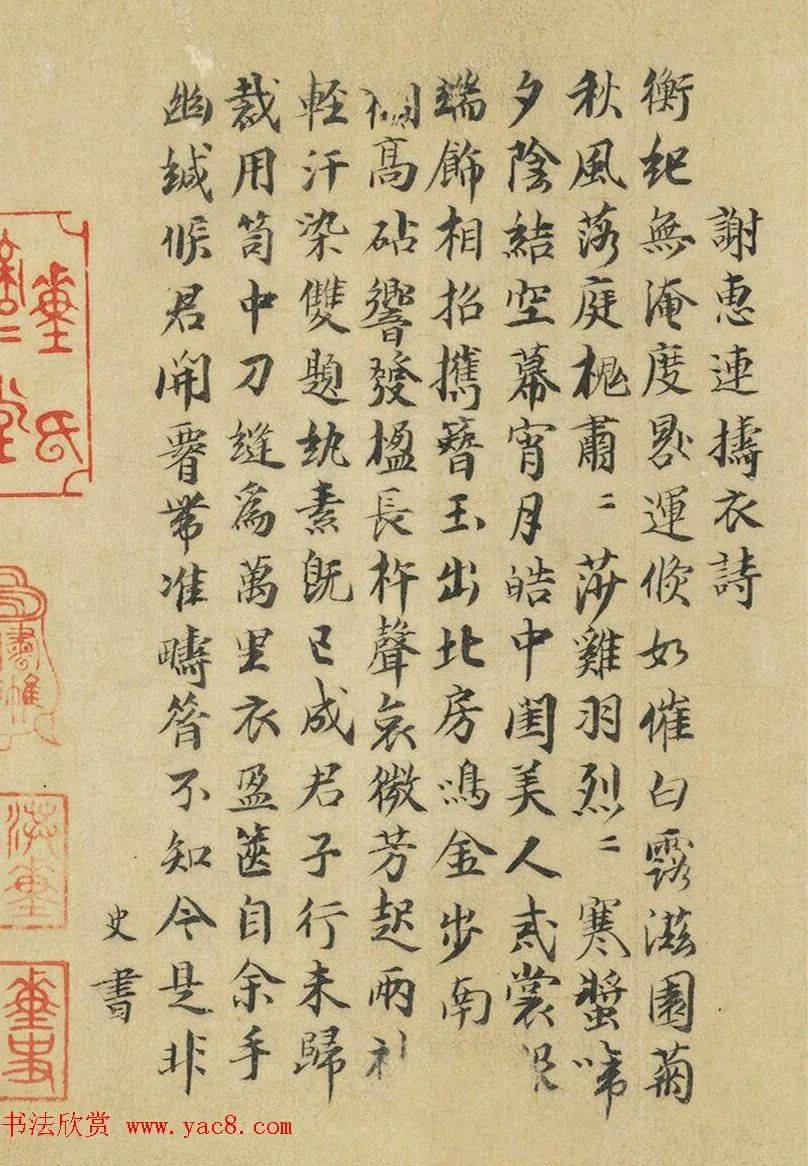 謝惠連擣衣詩
衡紀無淹度晷運倏如催白露滋園菊
秋風落庭槐肅〻莎雞羽烈〻寒螿啼
夕陰結空幕宵月皓中閨美人戒裳
端飾相招攜簪玉出北房鳴金步南
高砧響發楹長杵聲哀微芳起兩
輕汗染雙題紈素既已成君子行未歸
裁用笥中刀縫為萬里衣盈篋自余手
幽緘候君開腰帶准疇昔不知今是非
史書
董氏
董史
书法欣赏 www.yac8.com